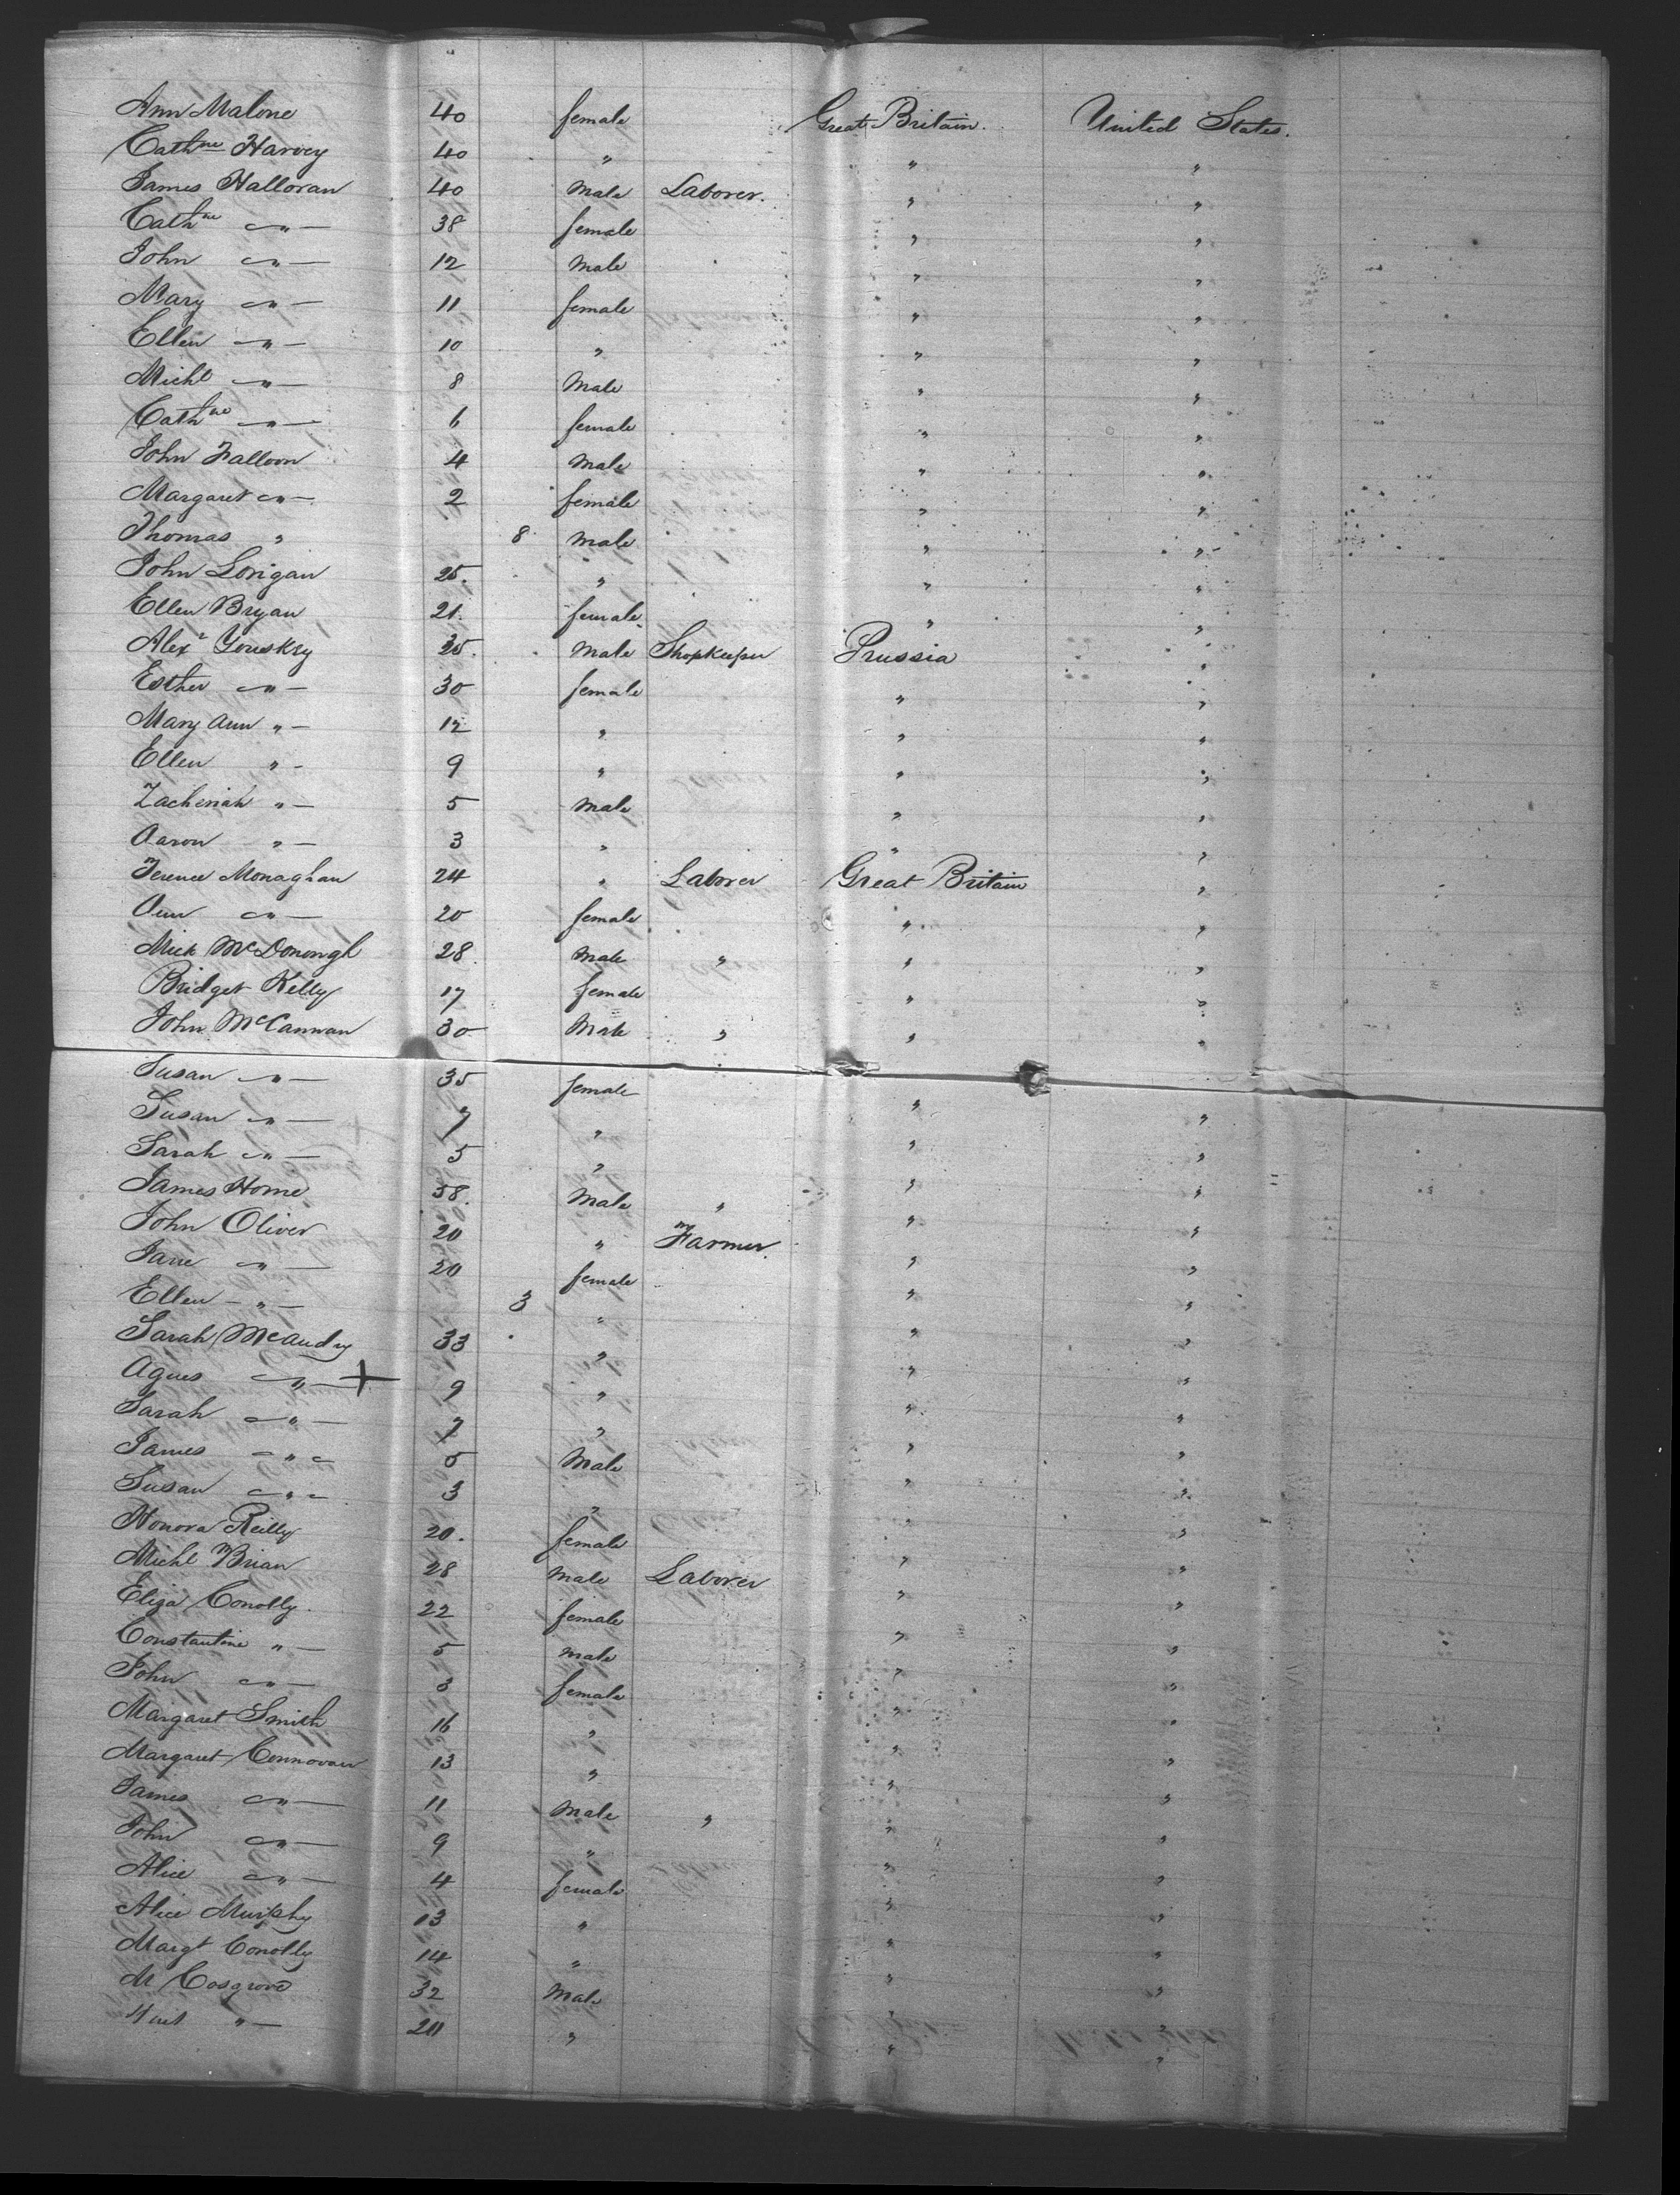 Ann Malone 40 female Great Britain. United States.
Cathne Harvey 40 " " "
James Halloran 40 Male Laborer. " "
Cathne " 38 female " "
John " 12 Male " "
Mary " 11 female " "
Ellen " 10 " " "
Michl " 8 Male " "
Cathne " 6 female " "
John Falloon 4 Male " "
Margaret " 2 female " "
Thomas " 8 Male " "
John Lorigan 25. " " "
Ellen Bryan 21. female " "
Alexr 35. Male Shopkeeper Prussia "
Esther " 30 female " "
Mary Ann " 12 " " "
Ellen " 9 " " "
Zacheriah " 5 Male " "
Aaron " 3 " " "
Terence Monaghan 24 " Laborer Great Britain "
Ann " 20 female " "
Mick McDonongh 28. Male " " "
Bridget Kelly 17 female " "
John McCannan 30 Male " " "
Susan " 35 female " "
Susan " 7 " " "
Sarah " 5 " " "
James Horne 38. Male " " "
John Oliver 20 " Farmer. " "
Jane " 20 female " "
Ellen " 3 " " "
Sarah 33 " " "
Agnes " + 9 " " "
Sarah " 7 " " "
James " 5 Male " "
Susan " 3 " " "
Honora Reilly 20. female " "
Michl Brian 28 Male Laborer " "
Eliza Conolly. 22 female " "
Constantine " 5 Male " "
John " 3 female " "
Margaret Smith 16 " " "
Margaret Connovan 13 " " "
James " 11 Male " " "
John " 9 " " "
Alice " 4 female " "
Alice Murphy 13 " " "
Margt Conolly 14 " " "
M Cosgrove 32 Male " "
" 20 " " "